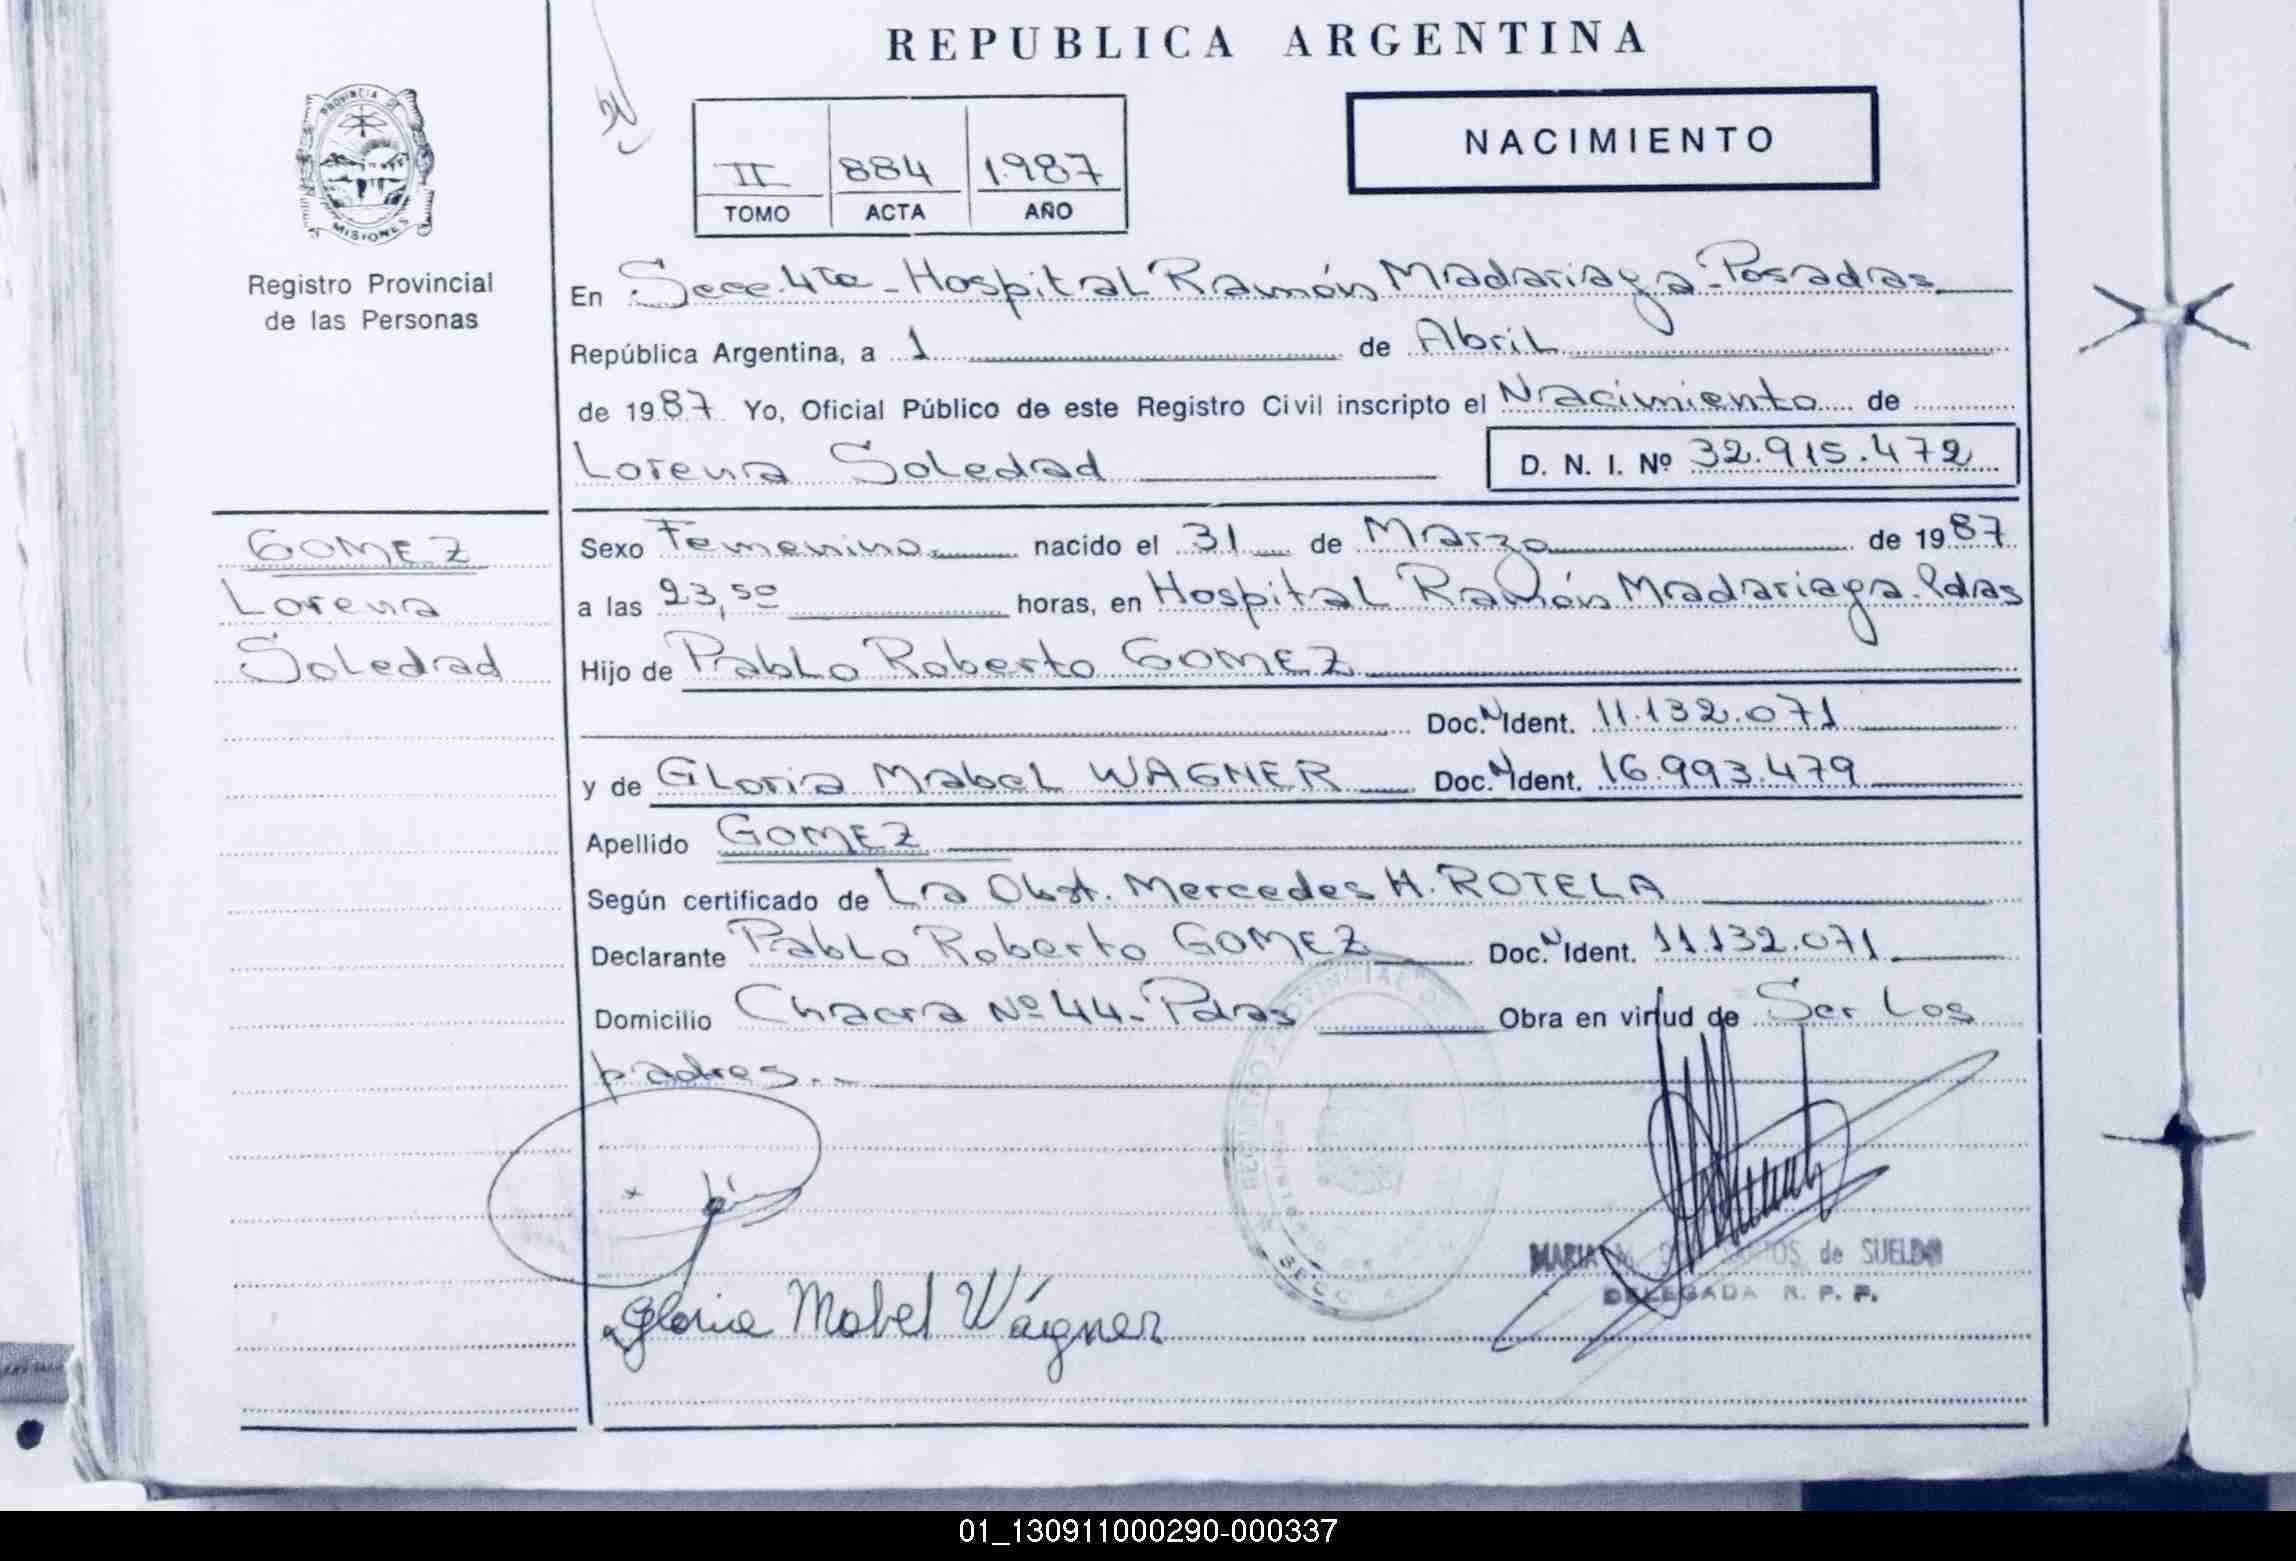 REPUBLICA ARGENTINA
PROVINCIA DE
MISIONES
Registro Provincial
de las Personas
II 884 1987
TOMO ACTA AÑO
NACIMIENTO
En Secc. 4ta - Hospital Ramón Madariaga - Posadas
República Argentina, a 1 de Abril
de 1987 Yo, Oficial Público de este Registro Civil inscripto el Nacimiento de
Lorena Soledad D. N. I. Nº 32.915.472
GOMEZ
Lorena
Soledad
Sexo Femenino nacido el 31 de Marzo de 1987
a las 23,50 horas, en Hospital Ramón Madariaga. Pdas
Hijo de Pablo Roberto GOMEZ
Doc. N Ident. 11.132.071
y de Gloria Mabel WAGNER Doc. N Ident. 16.993.479
Apellido GOMEZ
Según certificado de La Obst. Mercedes H. ROTELA
Declarante Pablo Roberto GOMEZ Doc. N Ident. 11.132.071
Domicilio Chacra Nº 44 - Pdas Obra en virtud de Ser Los
padres.
REGISTRO PROVINCIAL DE
MARIA de SUELDO
DELEGADA R. P. P.
Gloria Mabel Wágner
01_130911000290-000337